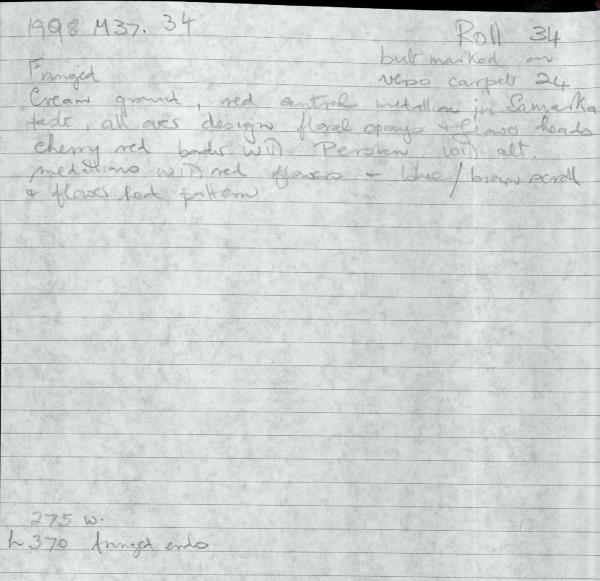 1998 M37. 34
Roll 34
but marked on
verso carpet 24
Fringed
Cream ground, red central medallion in Samarka
, all over design floral sprays + flower heads
cherry red border with Persian, with alt.
medallions with red flowers - blue/brown scroll
+ flower head pattern
275 w.
L 370 fringed ends